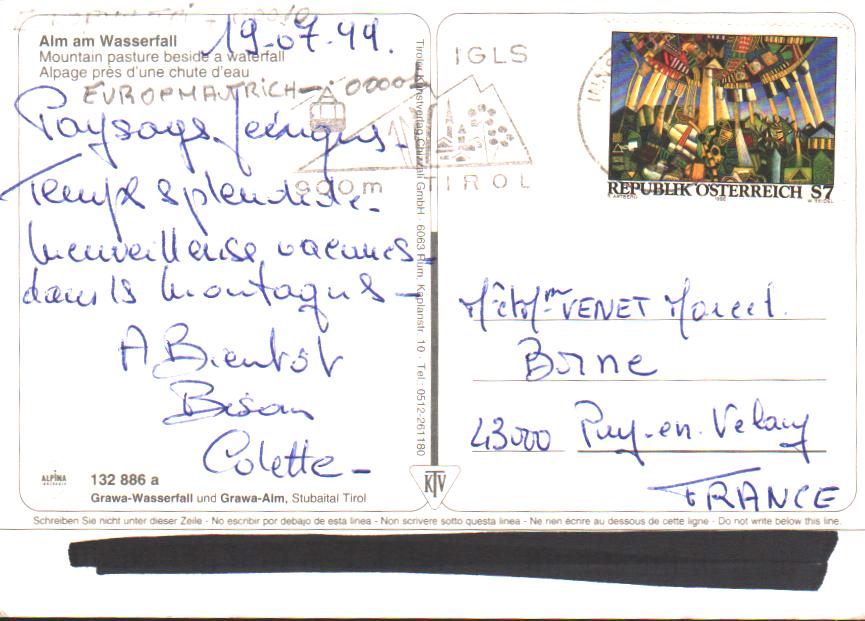 19-07-99.
Alm am Wasserfall
Mountain pasture beside a waterfall
Alpage près d'une chute d'eau
EUROPMAUTRICH - 0000
Paysages
Temps splendide -
Merveilleuse vacances
dans ls montagnes -
A Bientôt
Bison
Colette -
ALPINA
132 886 a
Grawa-Wasserfall und Grawa-Alm, Stubaital Tirol
Tiroler Kunstverlag Chizzali GmbH · 6063 Rum, Kaplanstr. 10 · Tel.: 0512-261180
KTV
IGLS
900m TIROL
REPUBLIK ÖSTERREICH S7
Mr et Mme VENET Marcel.
Borne
43000 Puy-en-Velay
FRANCE
Schreiben Sie nicht unter dieser Zeile - No escribir por debajo de esta linea - Non scrivere sotto questa linea - Ne rien écrire au dessous de cette ligne - Do not write below this line.